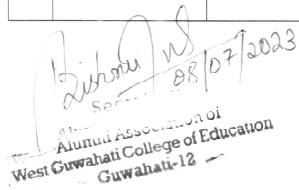 08/07/2023
Alumni Association of
West Guwahati College of Education
Guwahati-12